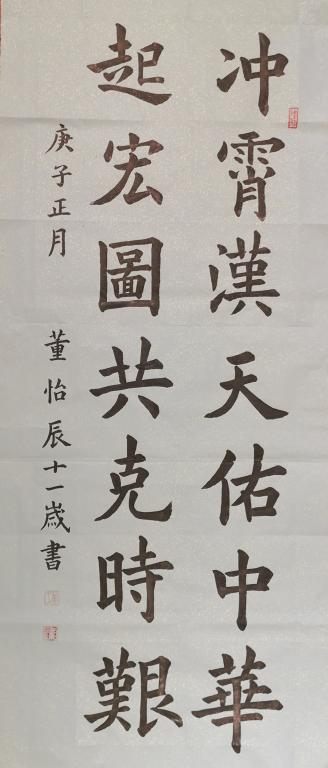 冲霄漢天佑中華
起宏圖共克時艱
庚子正月 董怡辰十一歲書